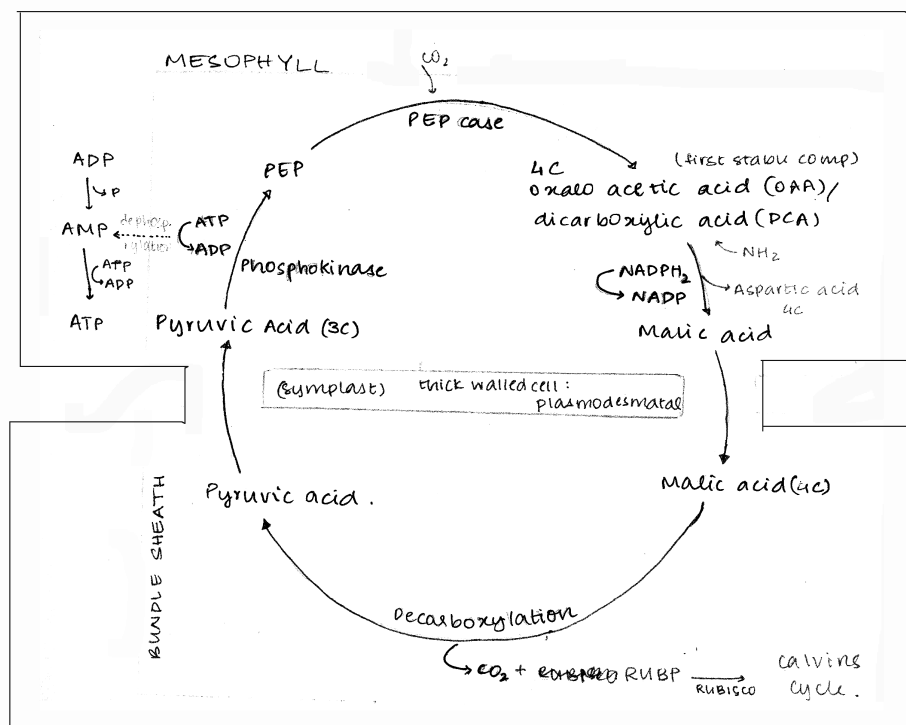 MESOPHYLL
CO₂
PEP case
PEP
4C
(first stable comp)
oxalo acetic acid (OAA)/
dicarboxylic acid (DCA)
NH₂
NADPH₂
NADP
Aspartic acid
4C
Malic acid
ADP
P
AMP
dephosp
rylation
ATP
ADP
ATP
ADP
ATP
Phosphokinase
Pyruvic Acid (3C)
(symplast) thick walled cell :
plasmodesmatal
BUNDLE SHEATH
Pyruvic acid .
Malic acid (4C)
Decarboxylation
CO₂ + RUBP
RUBISCO
calvins
cycle .